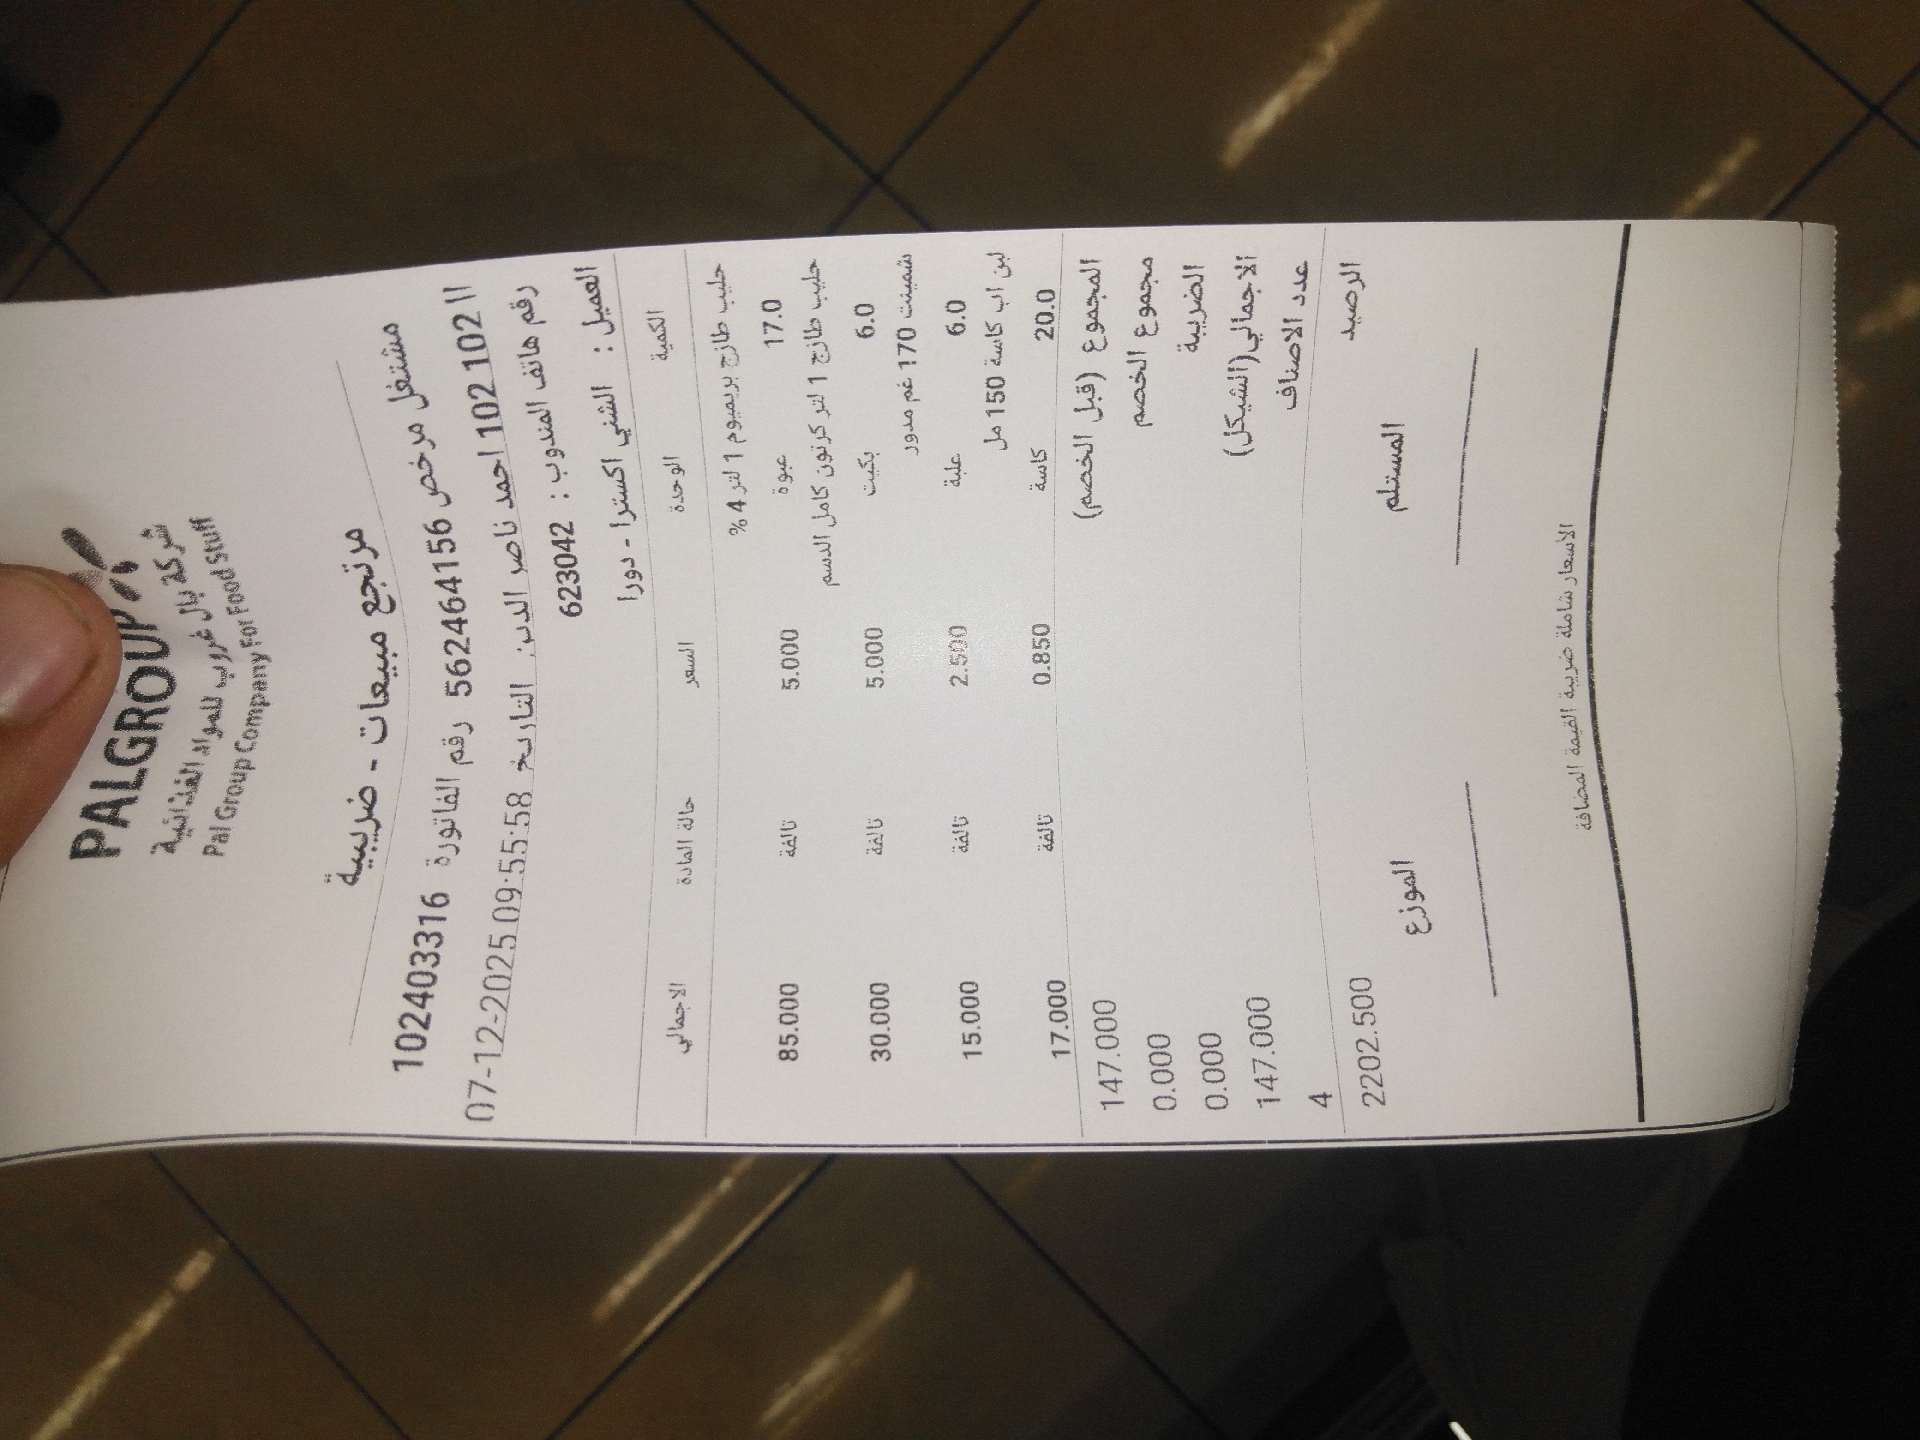 PALGROUP
شركة بال غروب للمواد الغذائية
Pal Group Company For Food Stuff
مرتجع مبيعات - ضريبية
مشتغل مرخص 562464156 رقم الفاتورة 102403316
102 102 احمد ناصر الدين التاريخ 07-12-2025 09:55:58
رقم هاتف المندوب : 623042
العميل : الشني اكسترا - دورا
الكمية الوحدة السعر حالة المادة الاجمالي
حليب طازج بريميوم 1 لتر 4 %
17.0 عبوة 5.000 تالفة 85.000
حليب طازج 1 لتر كرتون كامل الدسم
6.0 بكيت 5.000 تالفة 30.000
شمينت 170 غم مدور
6.0 علبة 2.500 تالفة 15.000
لبن اب كاسة 150 مل
20.0 كاسة 0.850 تالفة 17.000
المجموع (قبل الخصم) 147.000
مجموع الخصم 0.000
الضريبة 0.000
الاجمالي(الشيكل) 147.000
عدد الاصناف 4
الرصيد 2202.500
المستلم الموزع
الأسعار شاملة ضريبة القيمة المضافة